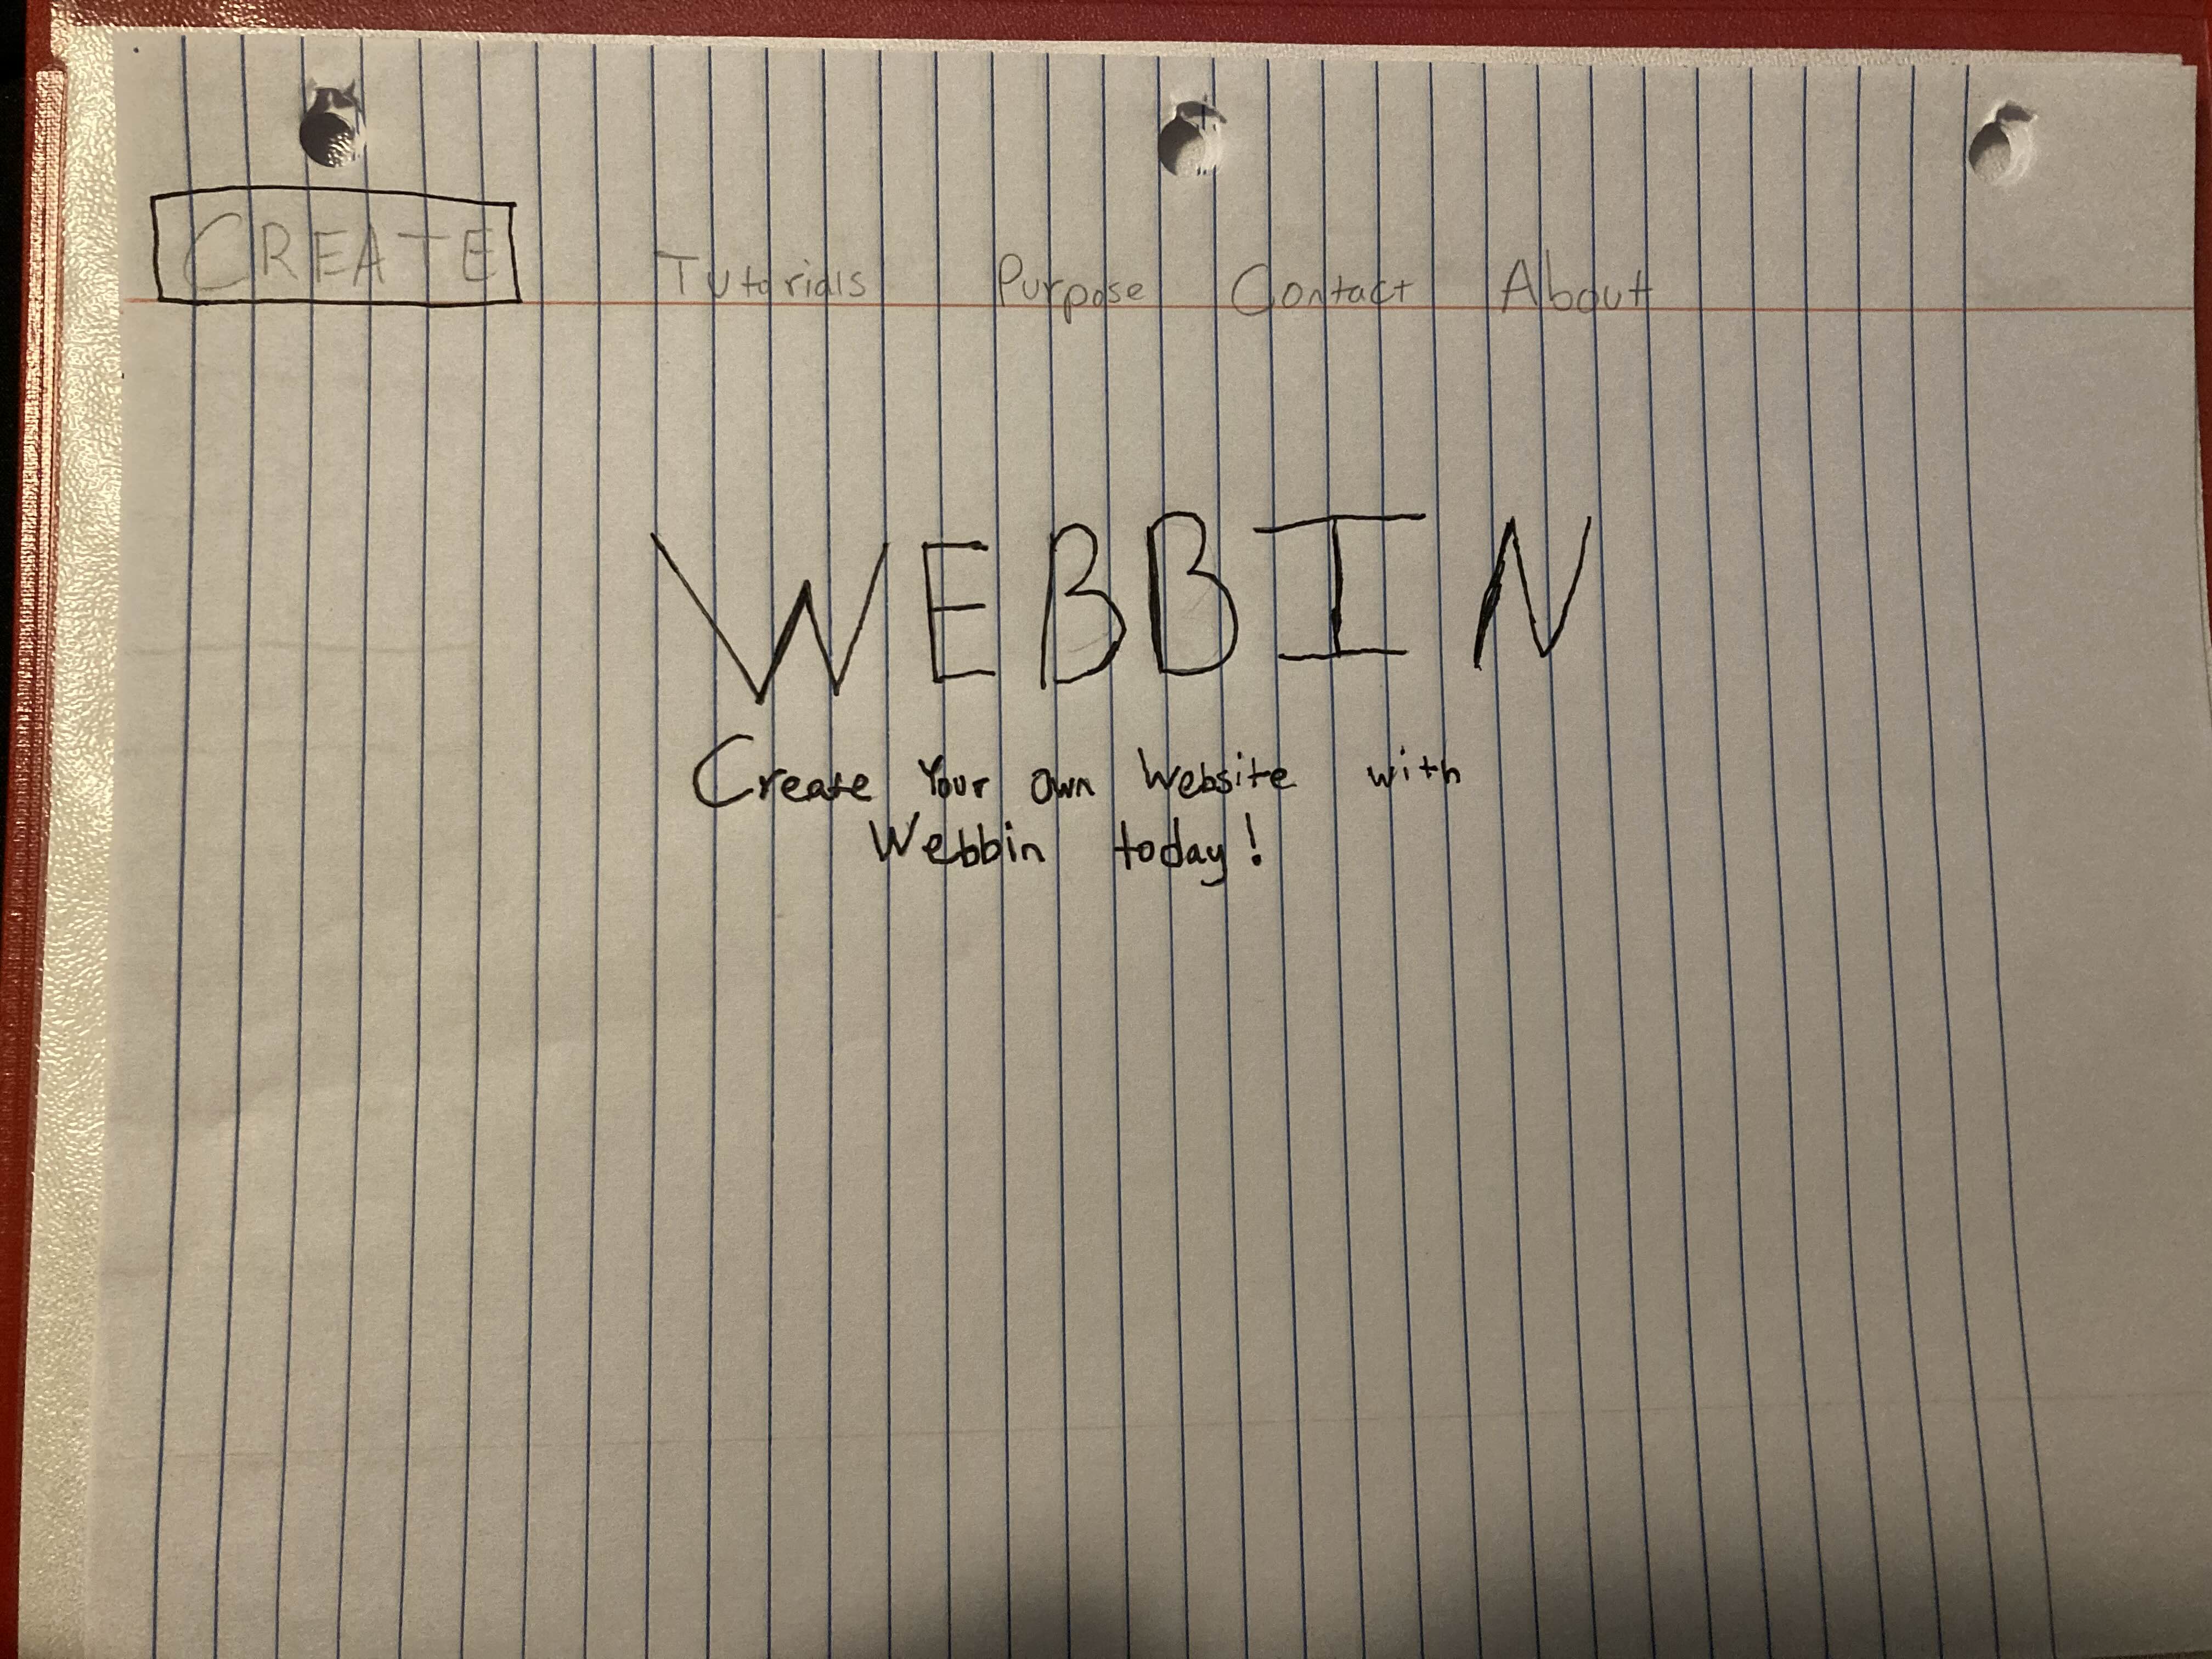 CREATE Tutorials Purpose Contact About
WEBBIN
Create Your Own Website with
Webbin today!